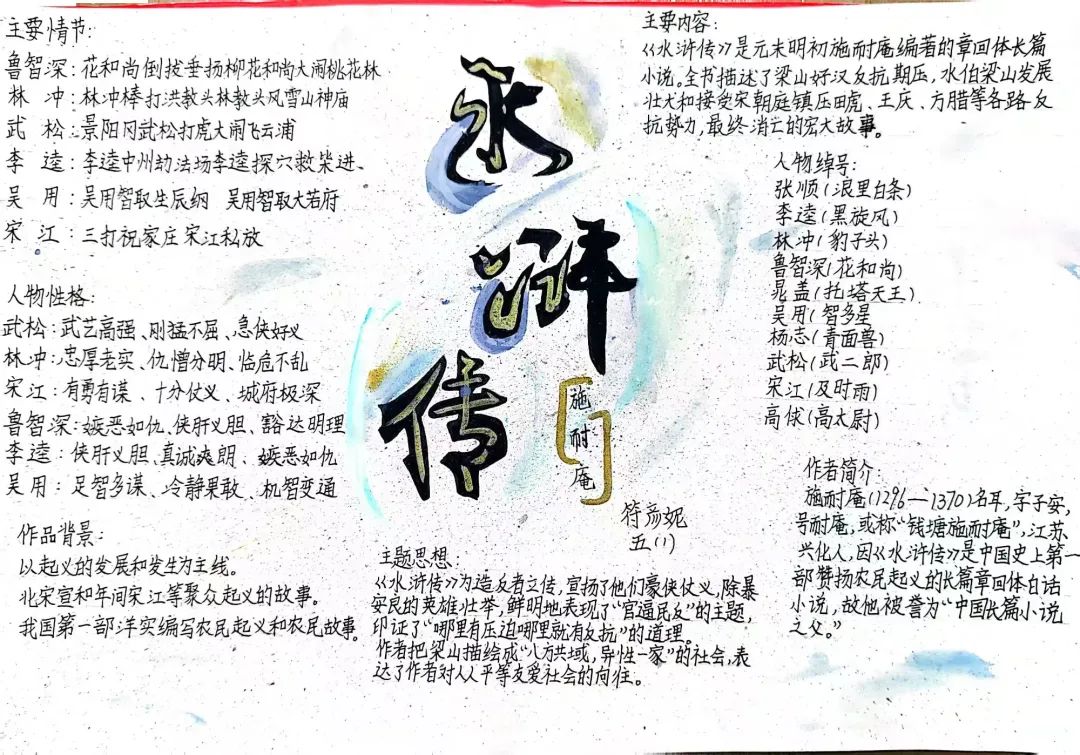 主要情节:
鲁智深:花和尚倒拔垂扬柳花和尚大闹桃花林
林 冲:林冲棒打洪教头林教头风雪山神庙
武 松:景阳冈武松打虎大闹飞云浦
李 逵:李逵中州劫法场李逵探穴救柴进、
吴 用:吴用智取生辰纲 吴用智取大名府
宋 江:三打祝家庄宋江私放
人物性格:
武松:武艺高强、刚猛不屈、急侠好义
林冲:忠厚老实、仇憎分明、临危不乱
宋江:有勇有谋、十分仗义、城府极深
鲁智深:嫉恶如仇、侠肝义胆、豁达明理
李逵:侠肝义胆、真诚爽朗、嫉恶如仇
吴用:足智多谋、冷静果敢、机智变通
作品背景:
以起义的发展和发生为主线。
北宋宣和年间宋江等聚众起义的故事。
我国第一部洋实编写农民起义和农民故事。
水
浒
传
施耐庵
符彦妮
五(1)
主题思想:
《水浒传》为造反者立传,宣扬了他们豪侠仗义,除暴
安民的英雄壮举,鲜明地表现了“官逼民反”的主题,
印证了“哪里有压迫哪里就有反抗”的道理。
作者把梁山描绘成“八方共域,异性一家”的社会,表
达了作者对人人平等友爱社会的向往。
主要内容:
《水浒传》是元末明初施耐庵编著的章回体长篇
小说。全书描述了梁山好汉反抗期压,水伯梁山发展
壮大和接受宋朝庭镇压田虎、王庆、方腊等各路反
抗势力,最终消亡的宏大故事。
人物绰号:
张顺(浪里白条)
李逵(黑旋风)
林冲(豹子头)
鲁智深(花和尚)
晁盖(托塔天王)
吴用(智多星
杨志(青面兽)
武松(武二郎)
宋江(及时雨)
高俅(高太尉)
作者简介:
施耐庵(1296—1370)名耳,字子安,
号耐庵,或称“钱塘施耐庵”,江苏
兴化人,因《水浒传》是中国史上第一
部赞扬农民起义的长篇章回体白话
小说,故他被誉为“中国长篇小说
之父。”